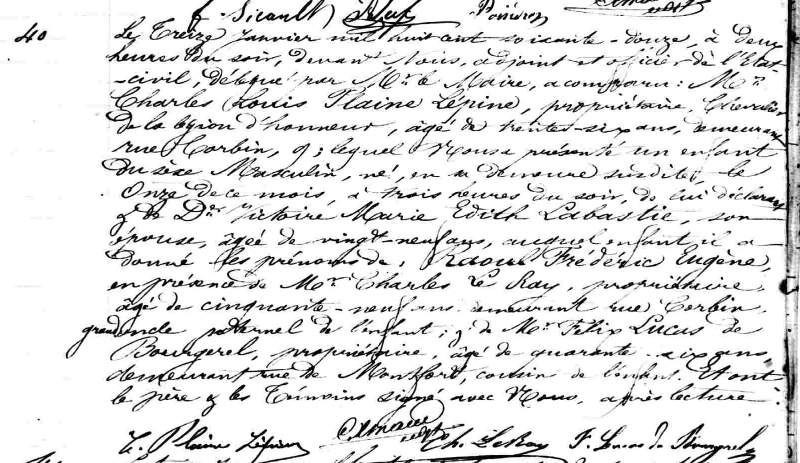 Sicault
40
Le Treize Janvier mil huit cent soixante-douze, à deux
heures du soir, devant Nous, adjoint et officier de l'Etat-
-civil, délégué par Mr. le Maire, a comparu: Mr.
Charles Louis Plaine Lépine, propriétaire, Chevalier
de la légion d'honneur, âgé de trente-six ans, demeurant
rue Corbin, 9; lequel Nous a présenté un enfant
du sèxe Masculin, né, en sa demeure susdite, le
Onze de ce mois, à trois heures du soir, de lui déclarant
& de De. Victoire Marie Edith Labastie, son
épouse, âgée de vingt-neuf ans, auquel enfant il a
donné les prénoms de: Raoul Frédéric Eugène,
en présence de Mr. Charles Le Ray, propriétaire,
âgé de cinquante-neuf ans demeurant rue Corbin,
grand oncle paternel de l'enfant; & de Mr. Félix Lucas de
Bourgerel, propriétaire, âgé de quarante-six ans,
demeurant rue de Montfort, cousin de l'enfant. Et ont
le père & les Témoins signé avec Nous, après lecture.
C. Plaine Lépine Ch. LeRay F. Lucas de Bourgerel